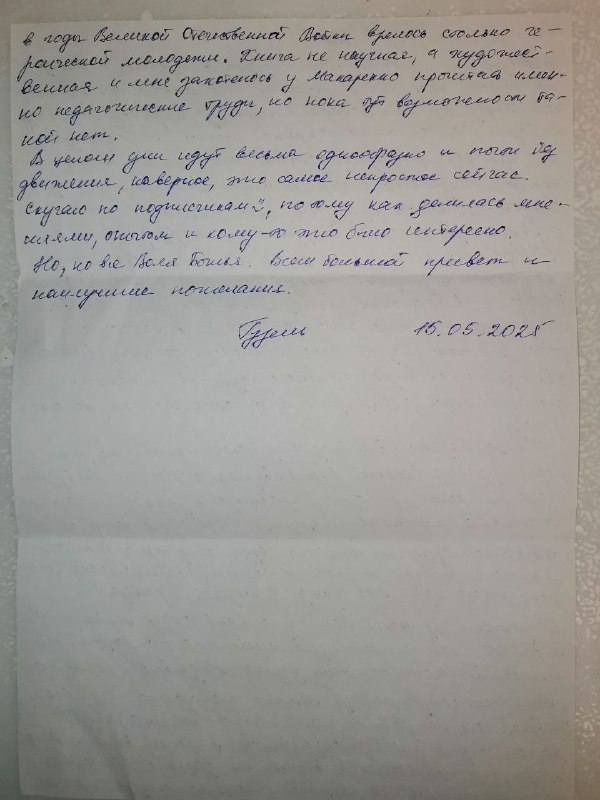 в годы Великой Отечественной Войны взялось столько ге-
роической молодежи. Книга не научная, а художест-
венная и мне захотелось у Макаренко прочитать имен-
но педагогические труды, но пока тут возможности та-
кой нет.
В целом дни идут весьма однообразно и почти без
движения, наверное, это самое непростое сейчас.
Скучаю по подписчикам :), потому как делилась мне-
ниями, опытом и кому-то это было интересно.
Но, на все Воля Божья. Всем большой привет и
наилучшие пожелания.
Гузель 15.05.2025